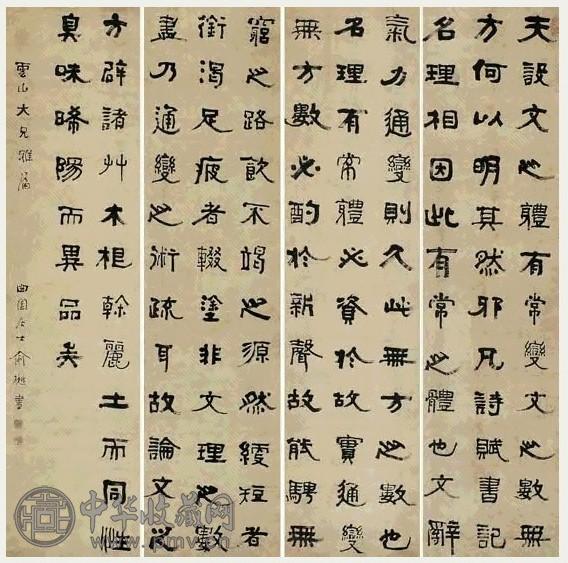 夫設文之體有常變文之數無
方何以明其然邪凡詩賦書記
名理相因此有常之體也文辭
氣力通變則久此無方之數也
名理有常體必資於故實通變
無方數必酌於新聲故能騁無
窮之路飲不竭之源然綆短者
銜渴足疲者輟塗非文理之數
盡乃通變之術疏耳故論文之
方辟諸艸木根幹麗土而同性
臭味晞陽而異品矣
雲山大兄雅屬
曲園居士俞樾書
中华收藏网
www.pmv.cn